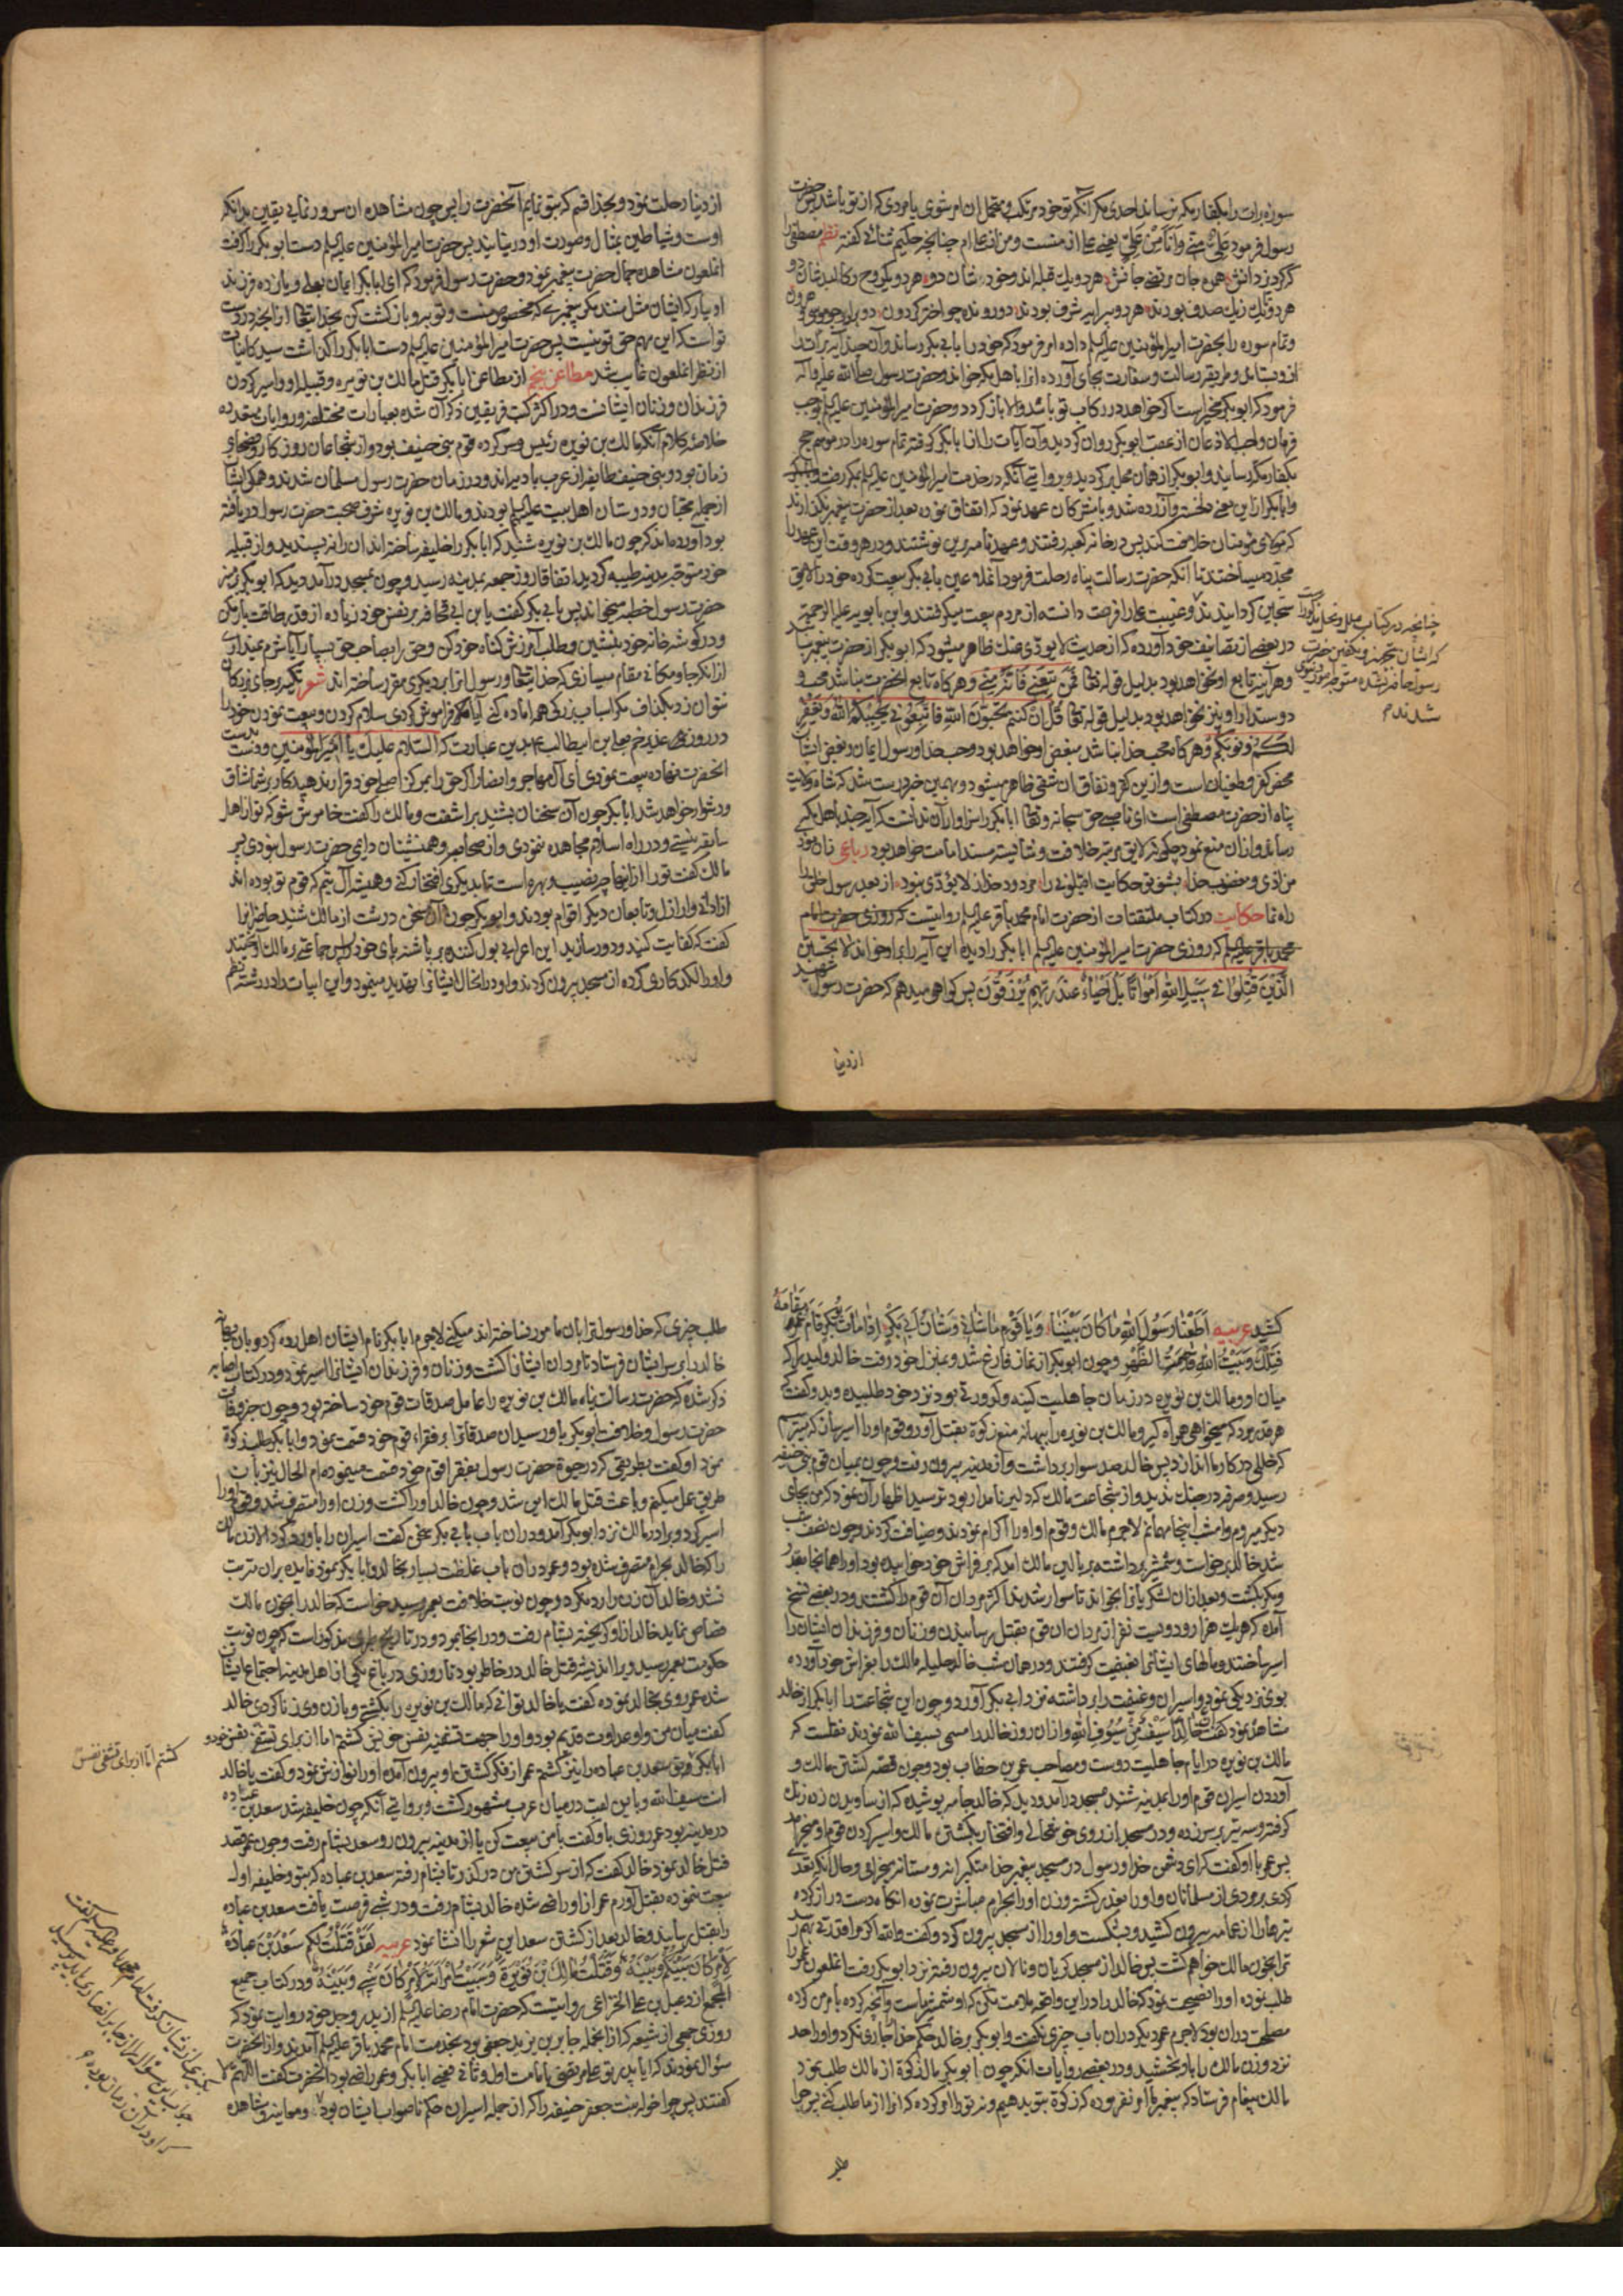 سوره برات را بکفار مکه نرساند احدی مکر آنکه تو خود مرتکب و متحمل ان امر شوی یا مردی که از تو باشد پس حضرت
رسول فرمود عَلِیٌّ مِنّی وَاَنَا مِنْ عَلِیٍّ یعنی علی از منست و من از علی ام چنانچه حکیم ثنائی کفته نظم مصطفی را
هر دو یک قبله اند و خردشان دو هر دو یکروح و کالبدشان دو
هر دو یک در ز یک صدف بودند هر دو پیرایه شرف بودند دو رونده چو اختر کردون دو برادر چو موسی و هرون
و تمام سوره را بحضرت امیرالمؤمنین علیه السلم داده امر فرمود که خود را بابی بکر رساند و آن چند آیه برات را
از و بستاند و طریقه رسالت و سفارت بجای آورده انرا باهل مکه خواند و حضرت رسول صلی الله علیه و آله
فرمود که ابوبکر مخیر است اکر خواهد در رکاب تو باشد والا باز کردد و حضرت امیرالمؤمنین علیه السلم بموجب
فرمان واجب الاذعان از عقب ابوبکر روان کردید و آن آیات را از ابابکر کرفته تمام سوره را در موسم حج
بکفار مکه رسانید و ابوبکر از همان محل بر کردید و بروایتی آنکه در خدمت امیرالمؤمنین علیه السلم بمکه رفت
و ابابکر از این معنی دلخسته و آزرده شد و با مشرکان عهد نمود که اتفاق نموده بعد از حضرت پیغمبر نکذارند
که مولای مؤمنان خلافت کند پس در خانه کعبه رفتند و عهد نامه برین نوشتند و در هر وقت این عهد را
مجدد میساختند تا آنکه حضرت رسالت پناه رحلت فرمود آنملاعین بابی بکر بیعت کرده خود را لایق
سجاین کردانیدند و غیبت علی را فرصت دانسته از مردم بیعت میکرفتند و ابن بابویه علیه الرحمه
در بعضی از تصانیف خود آورده که از حدیث لا یؤدی عنک ظاهر میشود که ابوبکر از حضرت پیغمبر نباشد
و هرآینه تابع او نخواهد بود بدلیل قوله تعالی فَمَن تَبِعَنی فَاِنَّهُ مِنّی و هر کاه تابع انحضرت نباشد محب و
دوستدار او نیز نخواهد بود بدلیل قوله تعالی قُل اِن کُنتُم تُحِبُّونَ اللّٰهَ فَاتَّبِعُونی یُحبِبکُمُ اللّٰهُ وَیَغفِر
لَکُم ذُنُوبَکُم و هر کاه محب خدا نباشد مبغض او خواهد بود و حب خدا و رسول ایمان و بغض ایشان
محض کفر و طغیان است و از ین کفر و نفاق ان شقی ظاهر میشود و بهمین خبر درست شد که شاه ولایت
پناه از حضرت مصطفی است
رساند و از ان منع نمود چکونه لایق مرتبه خلافت و شایسته مسند امامت خواهد بود رباعی
بشنو تو حکایت از بعد رسول خلق را
راه نما حکایت در کتاب ملتقتات از حضرت امام محمد باقر علیه السلم روایتست که روزی حضرت امام
محمد باقر علیه السلم که روزی حضرت امیرالمؤمنین علیه السلم ابابکر را دیده این آیه را بر او خواند لا تحسبن
الَّذینَ قُتِلوا فی سَبیلِ اللّٰهِ اَمواتاً بَل اَحیاءٌ عِندَ رَبِّهِم یُرزَقُون پس کواهی میدهم که حضرت رسول شهید
از دنیا
چنانچه در کتاب ملل و نحل مذکور است
که ایشان بتجهیز و تکفین حضرت
رسول حاضر نشده متوجه
شدند م
از دنیا رحلت نمود و بخدا قسم که بتو نمایم آنحضرت را پس چون مشاهده ان سرور نمایی یقین بدانکه
اوست و شیاطین بمثال و صورت او در نیایند پس حضرت امیرالمؤمنین علیه السلم دست ابوبکر را کرفت
انملعون مشاهده جمال حضرت پیغمبر نمود و حضرت رسول فرمود که ای ابابکر ایمان بعلی و یازده فرزند
او بیار که ایشان مثل منند مکر پیغمبری که مخصوص منست و توبه و باز کشت کن بخدایتعالی از انچه در دست
تو است که این مهم حق تو نیست پس حضرت امیرالمؤمنین علیه السلم دست ابابکر را کذاشت سید کاینات
از نظر انملعون غایب شد مطاعن پنجم از مطاعن ابابکر قتل مالک بن نویره و قبیله او و اسیر کردن
فرزندان و زنان ایشانست و در اکثر کتب فریقین ذکر آن شده بعبارات مختلفه و روایات متعدده
خلاصه کلام آنکه مالک بن نویره رئیس و سرکرده قوم بنی حنیف بود و از شجاعان روزکار و فصحای
زمان بود و بنی حنیف طایفه از عرب بادیه اند و در زمان حضرت رسول مسلمان شدند و همکی ایشان
از جمله محبان و دوستان اهل بیت علیهم السلم بودند و مالک بن نویره شرف صحبت حضرت رسول دریافته
بود آورده اند که چون مالک بن نویره شنید که ابابکر را خلیفه ساخته اند ان را نه پسندید و از قبیله
خود متوجه مدینه طیبه کردید اتفاقا روز جمعه بمدینه رسید و چون بمسجد درآمد دید که ابوبکر بر منبر
حضرت رسول خطبه میخواند پس بابی بکر کفت یا بن ابی قحافه بر نفس خود زیاده از قدر طاقت بار مکن
و در کوشه خانه خود بنشین و طلب آمرزش کناه خود کن و حق را بصاحب حق بسپار آیا شرم نمیداری
از انکه جا و مکانی مقام میسازی که خدایتعالی و رسول انرا بر دیکری مقرر ساخته اند شعر تکیه بر جای بزرکان
نتوان زد بکذاف مکر اسباب بزرکی همه اماده کنی آیا فراموش کردی سلام کردن و بیعت نمودن خود را
در روز غدیر خم بعلی بن ابیطالب بدین عبارت که السّلام علیک یا امیرالمؤمنین و دست بدست
انحضرت نهاده بیعت نمودی ای آل مهاجر و انصار اکر حق را بمرکز اصلی خود قرار ندهید کار بر شما شاق
و دشوار خواهد شد ابابکر چون آن سخنان بشنید براشفت و مالک را کفت خاموش شو که تو از اهل
سابقه نیستی و در راه اسلام مجاهده ننمودی و از مصاحبه و همنشینان دایمی حضرت رسول نبودی پس
مالک کفت تو را از اینها چه نصیب و بهره است تا بدیکری افتخار کنی و همیشه آل تیم که قوم تو بوده اند
از ادانی و اراذل و تابعان دیکر اقوام بودند و ابوبکر چون آن سخن درشت از مالک شنید حاضران را
کفت که کفایت کنید و دور سازید این اعرابی بول کننده بر پاشنه پای خود را پس جماعتی بر مالک آویختند
و او را لکدکاری کرده از مسجد بیرون کردند و او در انحال ایشانرا تهدید مینمود و این ابیات را در رشته نظم
کشید عربیه اَطَعنا رَسولَ اللّٰهِ ما کانَ بَینَنا وَیا قَومِ ما شَأنی وَشَأنُ اَبی بَکرٍ اِذا ماتَ بَکرٌ قامَ عَمرٌو مَقامَهُ
فَتِلکَ وَبَیتِ اللّٰهِ قاصِمَةُ الظَّهرِ و چون ابوبکر از نماز فارغ شد و بمنزل خود رفت خالد ولید را که
میان او و مالک بن نویره در زمان جاهلیت کینه و کدورتی بود نزد خود طلبیده و بدو کفت که
هر قدر مرد که میخواهی همراه کیر و مالک بن نویره را ببهانه منع زکوة بقتل آور و قوم او را اسیر سازکه میترسم
که خللی در کار ما اندازد پس خالد صد سوار برداشت و از مدینه بیرون رفت و چون بمیان قوم بنی حنیفه
رسید و صرفه در جنک ندید و از شجاعت مالک که دلیر نامدار بود ترسید اظهار آن نمود که من بجای
دیکر میروم و امشب اینجا مهمانم لاجرم مالک و قوم او او را اکرام نمودند و ضیافت کردند و چون نصف شب
شد خالد برخواست و شمشیر برداشته بر بالین مالک امد که بر فراش خود خوابیده بود او را همانجا بغدر
و مکر بکشت و بعد ازان لشکریان را بخواند تا سوار شدند و اکثر مردان آن قوم را کشتند و در بعضی نسخ
آمده که هزار و دویست نفر از مردان ان قوم بقتل رسانیدن و زنان و فرزندان ایشان را
اسیر ساختند و مالهای ایشانرا غنیمت کرفتند و در همان شب خالد حلیله مالک را بفراش خود آورده
بوی نزدیکی نمود و اسیران و غنیمت را برداشته نزد ابی بکر آورد و چون این شجاعت را ابابکر از خالد
مشاهده نمود کفت خالِدٌ سَیفٌ مِن سُیوفِ اللّٰهِ و ازان روز خالد را مسمی بسیف الله نمودند نقلست که
مالک بن نویره در ایام جاهلیت دوست و مصاحب عمر بن خطاب بود و چون قصه کشتن مالک و
آوردن اسیران قوم او را بمدینه شنید بمسجد درآمد و دید که خالد جامه پوشیده که از ساویدن زره زنک
کرفته و سه تیر بر سر زده و در مسجد از روی خوشحالی و افتخار بکشتن مالک و اسیر کردن قوم او میخرامد
پس عمر با او کفت که ای دشمن خدا و رسول در مسجد پیغمبر خدا متکبرانه و مستانه میخرامی و حال آنکه تعدی
کردی بر مردی از مسلمانان و او را بغدر کشته و زن او را بحرام مباشرت نموده انکاه دست دراز کرده
تیرها را از عمامه بیرون کشید و بشکست و او را از مسجد بیرون کرد و کفت والله اکر مرا قدرتی بهم رسد
ترا بخون مالک خواهم کشت پس خالد از مسجد کریان و نالان بیرون رفته نزد ابوبکر رفت انملعون عمر را
طلب نموده او را نصیحت نمود که خالد را در این واقعه ملامت نکنی که او شمشیر ماست و آنچه کرده بامر من کرده
مصلحت دران بود لاجرم عمر دیکر دران باب چیزی نکفت و ابوبکر بر خالد حکم خدا جاری نکرد و او را حد
نزد و زن مالک را باو بخشید و در بعضی روایات انکه چون ابوبکر مال زکوة از مالک طلب نمود
مالک پیغام فرستاد که پیغمبر ما امر نفرموده که زکوة بتو بدهیم و نه تو را امر کرده که انرا از ما طلب کنی پس چرا
طلب
طلب چیزی که خدا و رسول ترا بان مامور نساخته اند میکنی لاجرم ابابکر نام ایشان اهل رده کرد و بان بهانه
خالد را بر سر ایشان فرستاد تا مردان ایشانرا کشت و زنان و فرزندان ایشانرا اسیر نمود و در کتاب اصابه
ذکر شده که حضرت رسالت پناه مالک بن نویره را عامل صدقات قوم خود ساخته بود و چون خبر وفات
حضرت رسول و خلافت ابوبکر باو رسید ان صدقاترا بر فقراء قوم خود قسمت نمود و ابابکر طلب زکوة
نمود او کفت بطریقی که در حیوة حضرت رسول بفقراء قوم خود قسمت مینموده ام الحال نیز بان
طریق عمل میکنم و باعث قتل مالک این شد و چون خالد او را کشت و زن او را متصرف شد و قوم او را
اسیر کرد و برادر مالک نزد ابوبکر آمد و دران باب بابی بکر سخن کفت اسیران را باو رد کرد الا زن مالک
را که خالد بحرام متصرف شده بود و عمر دران باب غلظت بسیار بخالد و ابابکر نمود فایده بران مترتب
نشد و خالد آن زن را رد نکرد و چون نوبت خلافت بعمر رسید خواست که خالد را بخون مالک
قصاص نماید خالد از او کریخته بشام رفت و در انجا بمرد و در تاریخ طبری مذکور است که چون نوبت
حکومت بعمر رسید ویرا اندیشه قتل خالد در خاطر بود تا روزی در باغ یکی از اهل مدینه اجتماع ایشان
شده عمر روی بخالد نموده کفت یا خالد تو انی که مالک بن نویره را بکشتی و با زن وی زنا کردی خالد
کفت میان من و او عداوت قدیم بود و او را جهت تشفی نفس خود نیز کشتم اما از برای تشفی نفس تو
سعد بن عباده را نیز کشتم عمر از فکر کشتن او بیرون آمد و او را نوازش نمود و کفت یا خالد
انت سیف الله و باین لقب در میان عرب مشهور کشت و بروایتی آنکه چون خلیفه شد سعد بن عباده
در مدینه بود عمر روزی باو کفت با من بیعت کن یا از مدینه بیرون رو سعد بشام رفت و چون عمر قصد
قتل خالد نمود خالد کفت که از سر کشتن من درکذر تا بشام رفته سعد بن عباده که بتو و خلیفه اول
بیعت ننموده بقتل آورم عمر از او راضی شده خالد بشام رفت و در شبی فرصت یافت سعد بن عباده
را بقتل رسانید و خالد بعد از کشتن سعد این شعر را انشا نمود عربیه لَقَد قَتَلتُ لَکُم سَعدَ بنَ عُبادَةَ
لِاَمرٍ کانَ بَینَکُم وَبَینَهُ وَقَتَلتُ مالِکَ بنَ نُوَیرَةَ وَسَبَیتُ امرَأتَهُ لِاَمرٍ کانَ بَینی وَبَینَهُ و در کتاب جمیع
المجمع از دعبل بن علی الخزاعی روایتست که حضرت امام رضا علیه السلم از پدر و جد خود روایت نمود که
روزی جمعی از شیعه که از انجمله جابر بن یزید جعفی بود بخدمت امام محمد باقر علیه السلم آمدند و از انحضرت
سؤال نمودند که ایا پدر تو علی مرتضی بامامت اول و ثانی یعنی ابابکر و عمر راضی بود انحضرت کفت اللهم لا
کفتند پس چرا خوله بنت جعفر حنیفه را که از جمله اسیران حکم ناصواب ایشان بود و معاینه و مشاهده
کشتم اما از برای تشفی نفس